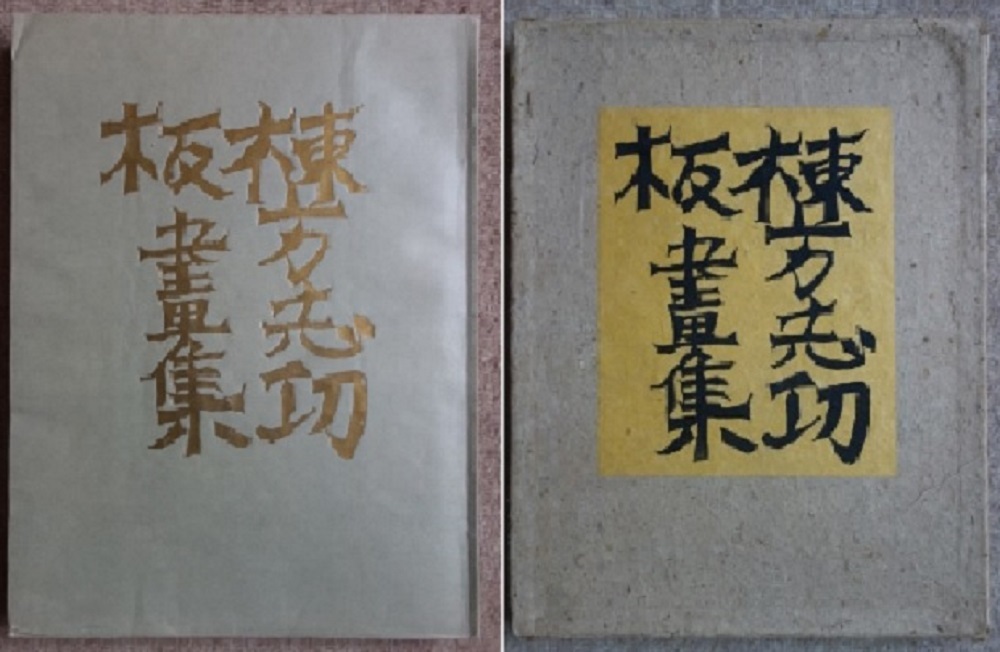 棟方志功
板畫集
棟方志功
板畫集